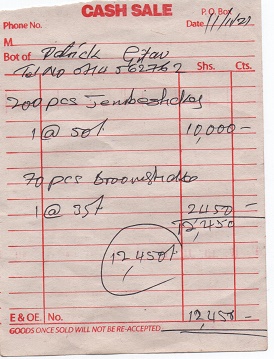 CASH SALE
P. O. Box
Phone No.
Date 11/11/21
M
Bot of Patrick Gitau
Tel No 0714 562762
Shs. Cts.
200 pcs Jembesticks
1 @ 50/ 10,000 -
70 pcs Broomsticks
1 @ 35/ 2450 -
12,450
12,450/
E & OE. No. 12,450 -
GOODS ONCE SOLD WILL NOT BE RE-ACCEPTED